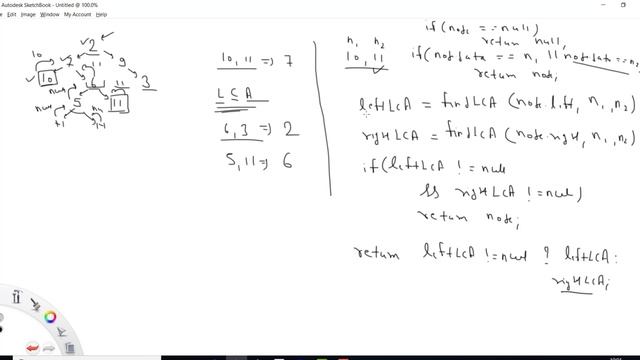 Autodesk SketchBook - Untitled @ 100.0%
Image Layer My Account Window Help
2
10
7
11
9
10
6
11
3
null
5
11
10, 11 => 7
LCA
6, 3 => 2
5, 11 => 6
n1 n2
10, 11
if (node == null)
return null;
if (node.data == n1 || node.data == n2
return node;
leftLCA = findLCA (node.left, n1, n2)
rightLCA = findLCA (node.right, n1, n2)
if (leftLCA != null
&& rightLCA != null)
return node;
return leftLCA != null ? leftLCA :
rightLCA;